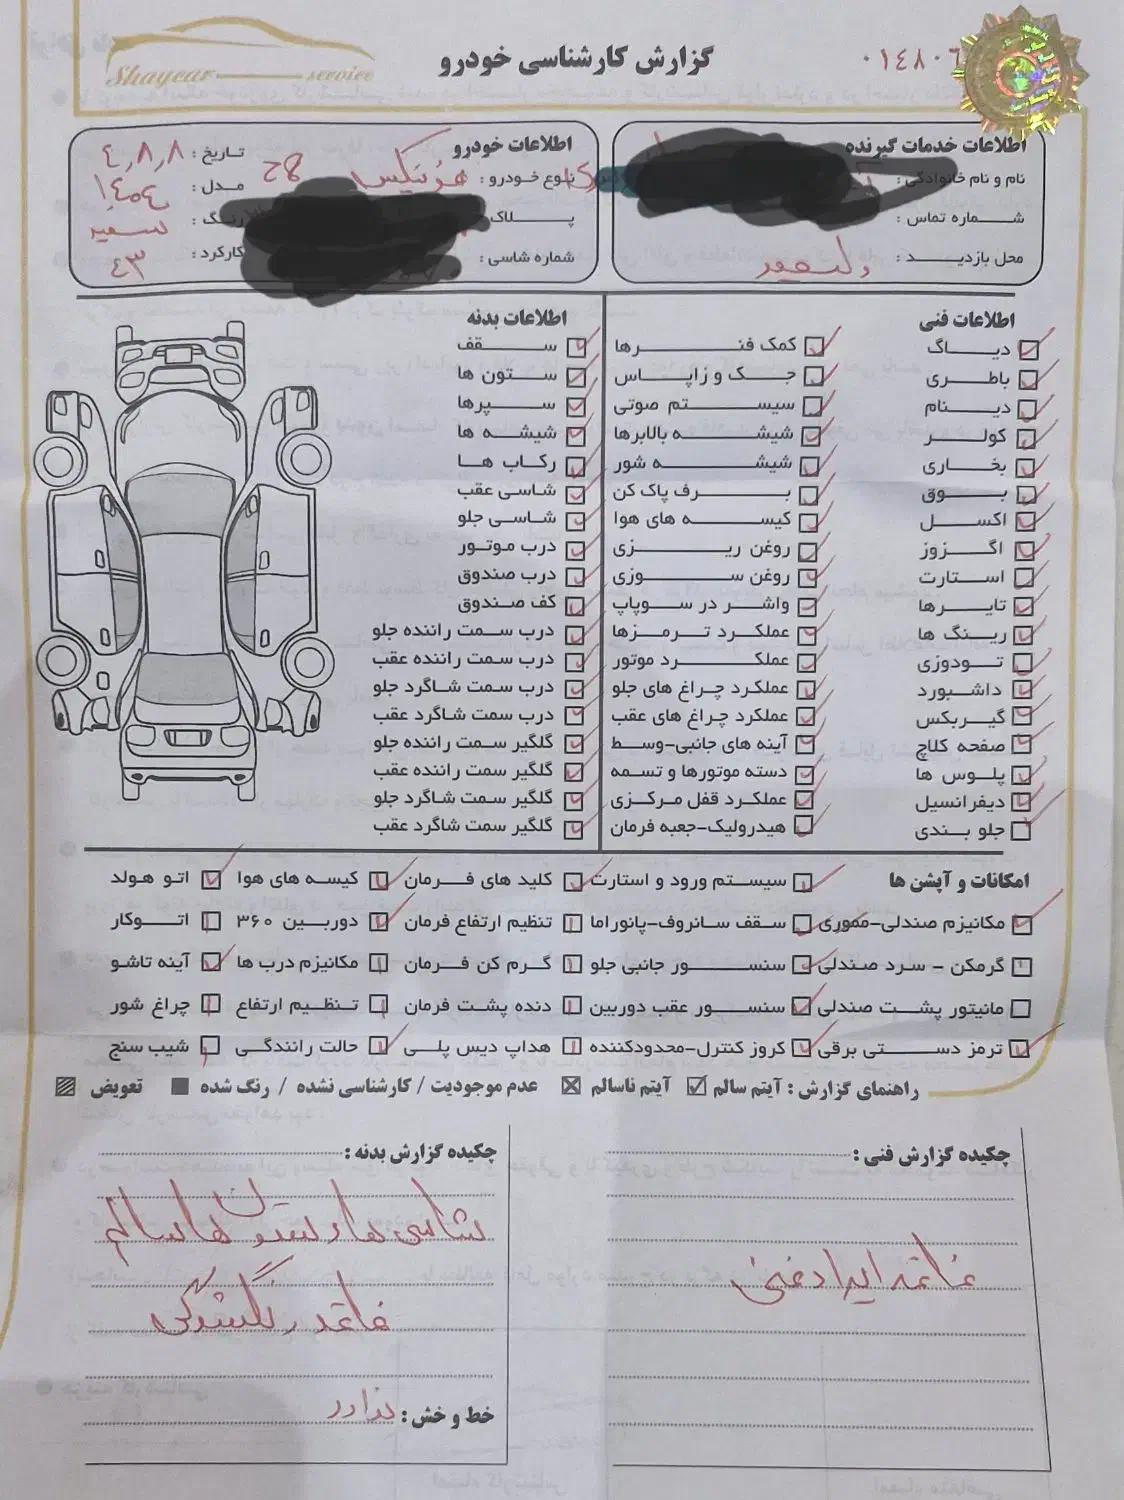 Shaycar service
گزارش کارشناسی خودرو
۰۱٤۸۰٦
اطلاعات خدمات گیرنده
نام و نام خانوادگی :
شماره تماس :
محل بازدید :
اطلاعات خودرو
نوع خودرو : فونیکس
پلاک
شماره شاسی :
تاریخ : ٤,۸,۸
مدل : ۱٤۰٤
رنگ : سفید
کارکرد : ٤۳
اطلاعات فنی
دیاگ
باطری
دینام
کولر
بخاری
بوق
اکسل
اگزوز
استارت
تایرها
رینگ ها
تودوزی
داشبورد
گیربکس
صفحه کلاچ
پلوس ها
دیفرانسیل
جلو بندی
کمک فنرها
جک و زاپاس
سیستم صوتی
شیشه بالابرها
شیشه شور
برف پاک کن
کیسه های هوا
روغن ریزی
روغن سوزی
واشر در سوپاپ
عملکرد ترمزها
عملکرد موتور
عملکرد چراغ های جلو
عملکرد چراغ های عقب
آینه های جانبی-وسط
دسته موتورها و تسمه
عملکرد قفل مرکزی
هیدرولیک-جعبه فرمان
اطلاعات بدنه
سقف
ستون ها
سپرها
شیشه ها
رکاب ها
شاسی عقب
شاسی جلو
درب موتور
درب صندوق
کف صندوق
درب سمت راننده جلو
درب سمت راننده عقب
درب سمت شاگرد جلو
درب سمت شاگرد عقب
گلگیر سمت راننده جلو
گلگیر سمت راننده عقب
گلگیر سمت شاگرد جلو
گلگیر سمت شاگرد عقب
امکانات و آپشن ها
سیستم ورود و استارت
کلید های فرمان
کیسه های هوا
اتو هولد
مکانیزم صندلی-مموری
سقف سانروف-پانوراما
تنظیم ارتفاع فرمان
دوربین ۳۶۰
اتوکار
گرمکن - سرد صندلی
سنسور جانبی جلو
گرم کن فرمان
مکانیزم درب ها
آینه تاشو
مانیتور پشت صندلی
سنسور عقب دوربین
دنده پشت فرمان
تنظیم ارتفاع
چراغ شور
ترمز دستی برقی
کروز کنترل-محدودکننده
هداپ دیس پلی
حالت رانندگی
شیب سنج
راهنمای گزارش : آیتم سالم آیتم ناسالم عدم موجودیت / کارشناسی نشده / رنگ شده تعویض
چکیده گزارش فنی :
فاقد ایراد فنی
چکیده گزارش بدنه :
شاسی ها و ستون ها سالم
فاقد رنگ شدگی
خط و خش : ندارد